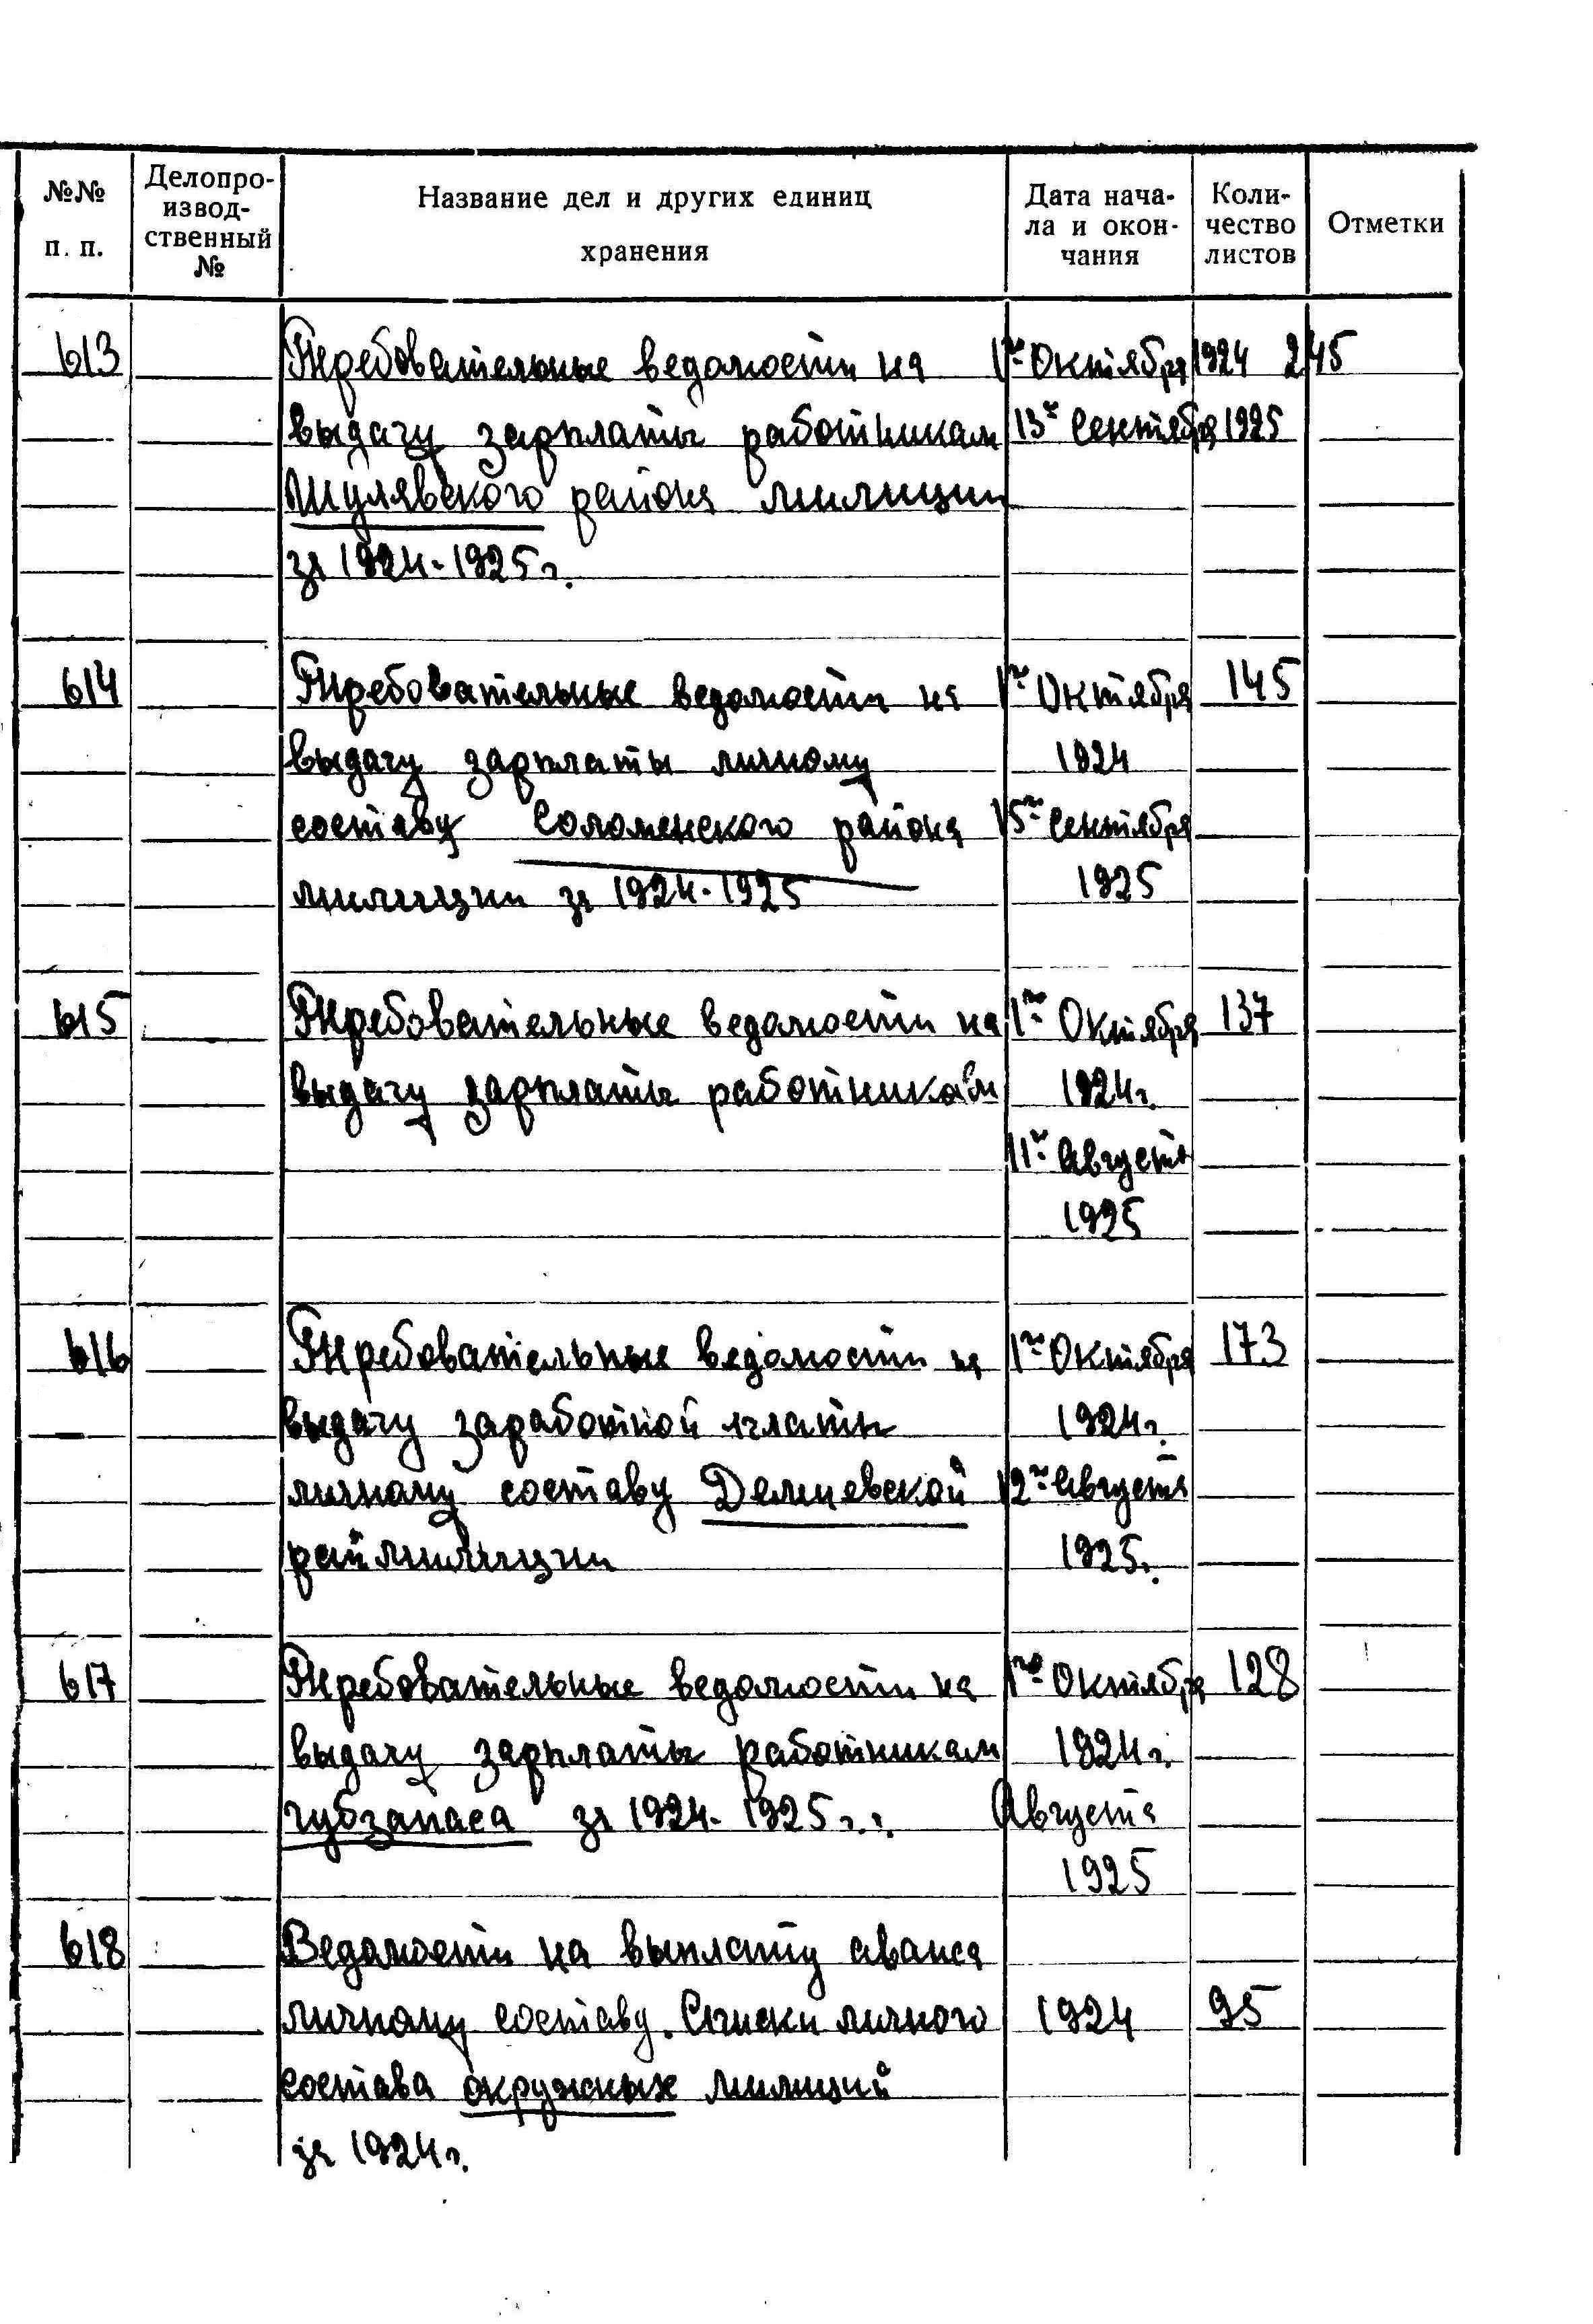 №№ п. п.
Делопро-
извод-
ственный
№
Название дел и других единиц
хранения
Дата нача-
ла и окон-
чания
Коли-
чество
листов
Отметки
613 Требовательные ведомости на 1го Октября 1924 245
выдачу зарплаты работникам 13го Сентября 1925
Шулявского района милиции
за 1924-1925г.
614 Требовательные ведомости на 1го Октября 145
выдачу зарплаты личному 1924
составу Соломенского района 15го Сентября
милиции за 1924-1925 1925
615 Требовательные ведомости на 1го Октября 137
выдачу зарплаты работникам 1924г.
11го Августа
1925
616 Требовательные ведомости на 1го Октября 173
выдачу заработной платы 1924г.
личному составу Демиевской 12го Августа
раймилиции 1925г.
617 Требовательные ведомости на 1го Октября 128
выдачу зарплаты работникам 1924г.
губзапаса за 1924-1925г.г. Августа
1925
618 Ведомости на выплату аванса
личному составу. Списки личного 1924 95
состава окружных милиций
за 1924г.